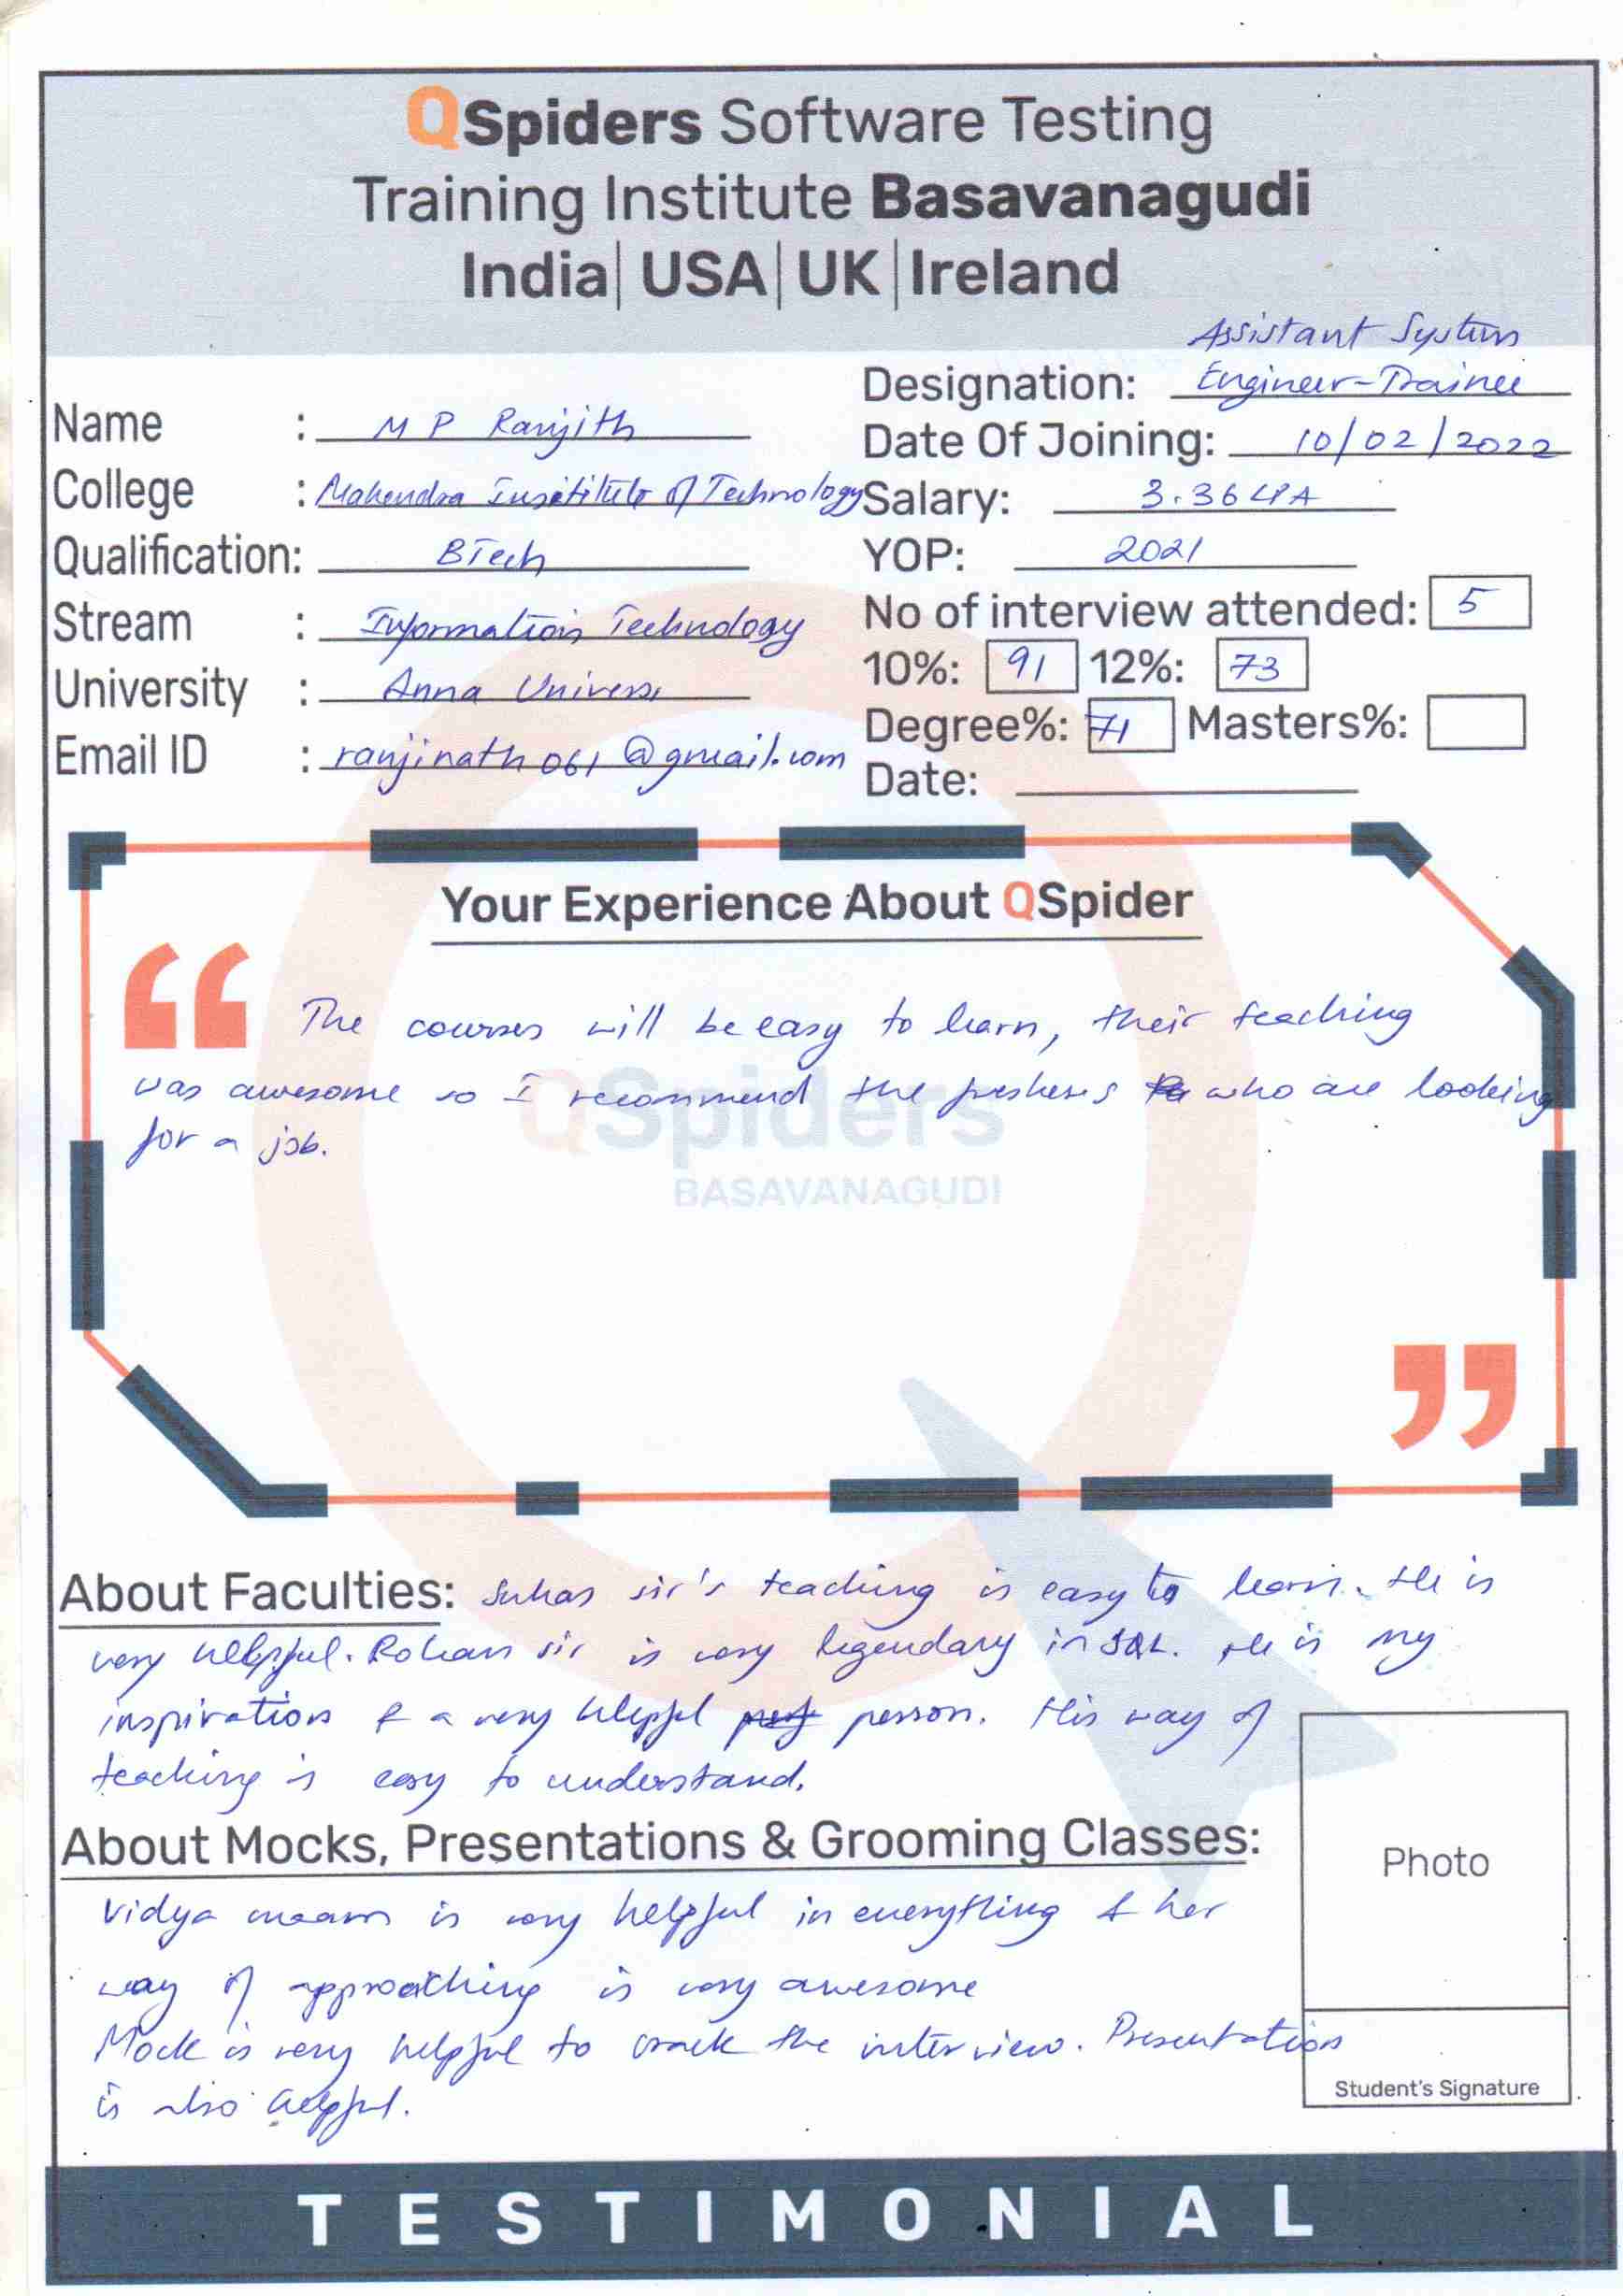 QSpiders Software Testing
Training Institute Basavanagudi
India| USA| UK |Ireland
Name : M P Ranjith
College : Mahendra Insititute of Technology
Qualification: BTech
Stream : Information Technology
University : Anna Univers
Email ID : ranjinath061@gmail.com
Assistant System
Designation: Engineer-Trainee
Date Of Joining: 10/02/2022
Salary: 3.36 LPA
YOP: 2021
No of interview attended: 5
10%: 91 12%: 73
Degree%: 71 Masters%:
Date:
Your Experience About QSpider
“ The courses will be easy to learn, their teaching
was awesome so I recommend the freshers who are looking
for a job.
”
QSpiders
BASAVANAGUDI
About Faculties: Suhas sir's teaching is easy to learn. He is
very helpful. Rohan sir is very legendary in SQL. He is my
inspiration & a very helpful person. His way of
teaching is easy to understand.
About Mocks, Presentations & Grooming Classes:
Vidya maam is very helpful in everything & her
way of approaching is very awesome
Mock is very helpful to crack the interview. Presentation
is also helpful.
Photo
Student's Signature
TESTIMONIAL